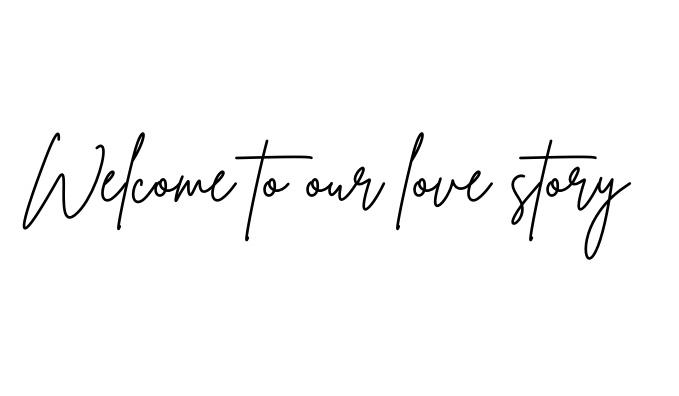 Welcome to our love story